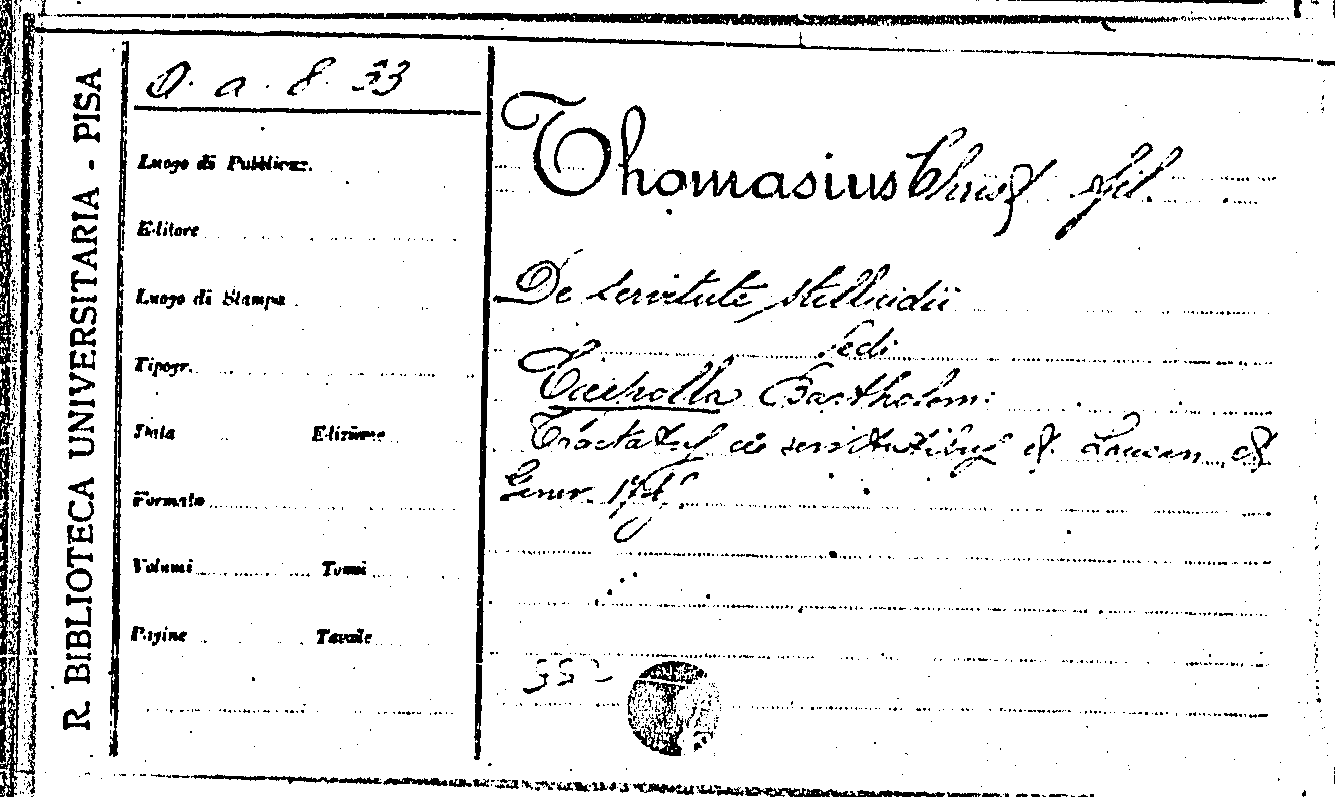 R. BIBLIOTECA UNIVERSITARIA - PISA
O. a. 8. 33
Luogo di Pubblicaz.
Editore
Luogo di Stampa
Tipogr.
Data Edizione
Formato
Volumi Tomi
Pagine Tavole
Thomasius Christ. fil.
De servitute stillicidii
Vedi
Caepolla Bartholom:
Tractatus de servitutibus &. Lausan. &
Genev.